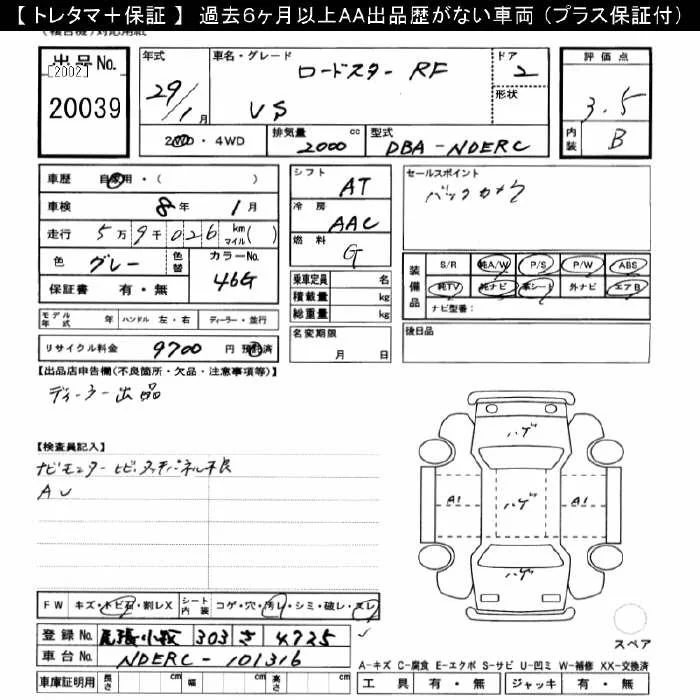 【トレタマ＋保証】 過去6ヶ月以上AA出品歴がない車両（プラス保証付）
出品No. [2002] 20039
年式 29/1月
車名・グレード ロードスター RF VS
ドア 2
形状
評価点 3.5
内装 B
2WD・4WD 排気量 2000 cc 型式 DBA-NDERC
車歴 自家用・( )
車検 8年 1月
走行 5万9千026 km マイル( )
色 グレー 色替 カラーNo. 46G
保証書 有・無
シフト AT
冷房 AAC
燃料 G
乗車定員 名
積載量 kg
総重量 kg
セールスポイント
バックカメラ
装備品 S/R 純A/W P/S P/W ABS
純TV 純ナビ 革シート 外ナビ エアB
ナビ型番：
モデル年式 年 ハンドル 左・右 ディーラー・並行
名変期限 月 日
後日品
リサイクル料金 9700 円 預託済
【出品店申告欄(不良箇所・欠品・注意事項等)】
ディーラー出品
【検査員記入】
ナビモニターヒビ、タッチパネル不良
AU
ハゲ
A1 ハゲ A1
ハゲ
FW キズ・トビ石・割レX シート内装 コゲ・穴・汚レ・シミ・破レ・スレ
登録No. 尾張小牧 303 さ 4725
車台No. NDERC-101316
車庫証明用 長さ cm 幅 cm 高さ cm
スペア
A-キズ C-腐食 E-エクボ S-サビ U-凹ミ W-補修 XX-交換済
工具 有・無 ジャッキ 有・無